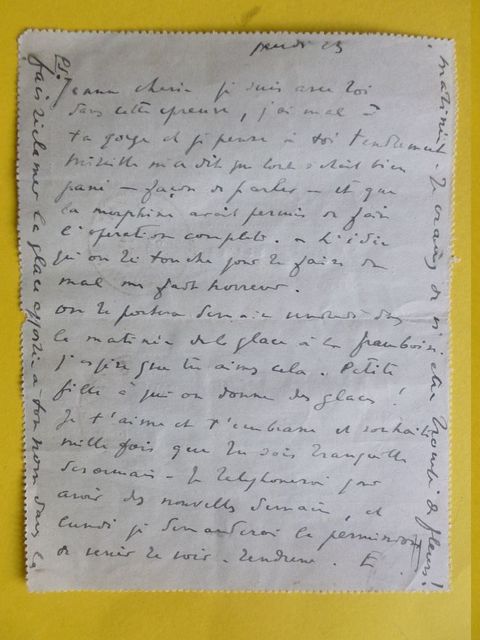 jeudi 23
Jeanne chérie je suis avec toi
dans cette épreuve, j'ai mal à
ta gorge et je pense à toi tendrement
Mireille m'a dit que tout s'était bien
passé — façon de parler — et que
la morphine avait permis de faire
l'opération complète. L'idée
qu'on te touche pour te faire du
mal me fait horreur.
on te portera demain vendredi dans
la matinée de la glace à la framboise.
j'espère que tu aimes cela. Petite
fille à qui on donne des glaces !
Je t'aime et t'embrasse et souhaite
mille fois que tu sois tranquille
désormais — Je téléphonerai pour
avoir des nouvelles demain, et
lundi je demanderai la permission
de venir te voir. Tendresse. E
P.S. fais réclamer la glace apportée à ton nom dans la
matinée. Je de fleurs !